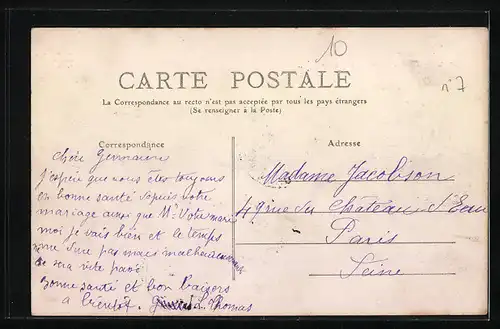 10
n° 7
CARTE POSTALE
La Correspondance au recto n'est pas acceptée par tous les pays étrangers
(Se renseigner à la Poste)
Correspondance
Adresse
chère Germaine
j'espère que vous êtes toujours
en bonne santé depuis votre
mariage ainsi que Mr Votre mari
moi je vais bien et le temps
me dure pas mais malheureusement
se sera vite passé
bonne santé et bon baisers
a bientôt. L. Thomas
Madame Jacobson
49 rue du Chateau d'Eau
Paris
Seine